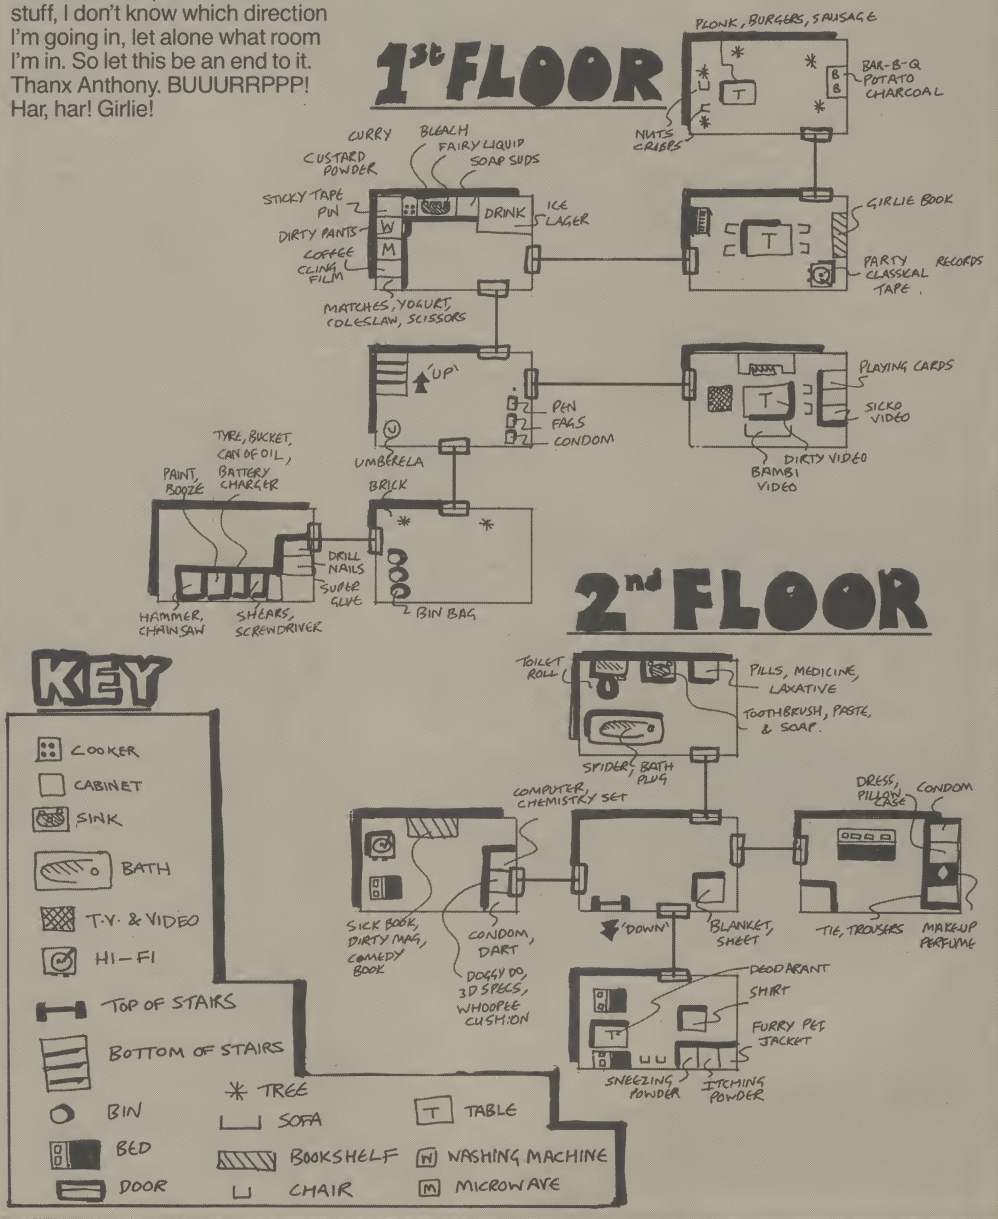 stuff, I don't know which direction
I'm going in, let alone what room
I'm in. So let this be an end to it.
Thanx Anthony. BUUURRPPP!
Har, har! Girlie!
1st FLOOR
PLONK, BURGERS, SAUSAGE
BAR-B-Q
POTATO
CHARCOAL
B
B
T
NUTS
CRISPS
CURRY
BLEACH
FAIRY LIQUID
SOAP SUDS
CUSTARD
POWDER
STICKY TAPE
PIN
DIRTY PANTS
COFFEE
CLING
FILM
W
M
DRINK
ICE
LAGER
MATCHES, YOGURT,
COLESLAW, SCISSORS
GIRLIE BOOK
T
PARTY RECORDS
CLASSICAL
TAPE.
'UP'
U
UMBERELA
PEN
FAGS
CONDOM
PLAYING CARDS
SICKO
VIDEO
T
DIRTY VIDEO
BAMBI
VIDEO
TYRE, BUCKET,
CAN OF OIL,
BATTERY
CHARGER
PAINT,
BOOZE
BRICK
DRILL
NAILS
SUPER
GLUE
HAMMER,
CHAINSAW
SHEARS,
SCREWDRIVER
BIN BAG
2nd FLOOR
TOILET
ROLL
PILLS, MEDICINE,
LAXATIVE
TOOTHBRUSH, PASTE,
& SOAP.
SPIDER, BATH
PLUG
COMPUTER,
CHEMISTRY SET
DRESS,
PILLOW
CASE
CONDOM
SICK BOOK,
DIRTY MAG,
COMEDY
BOOK
CONDOM,
DART
DOGGY DO,
3D SPECS,
WHOOPEE
CUSHION
'DOWN'
BLANKET,
SHEET
TIE, TROUSERS
MAKEUP
PERFUME
DEODARANT
SHIRT
FURRY PET
JACKET
T
SNEEZING
POWDER
ITCHING
POWDER
KEY
COOKER
CABINET
SINK
BATH
T.V. & VIDEO
HI-FI
TOP OF STAIRS
BOTTOM OF STAIRS
BIN
BED
DOOR
TREE
SOFA
BOOKSHELF
CHAIR
T TABLE
W WASHING MACHINE
M MICROWAVE